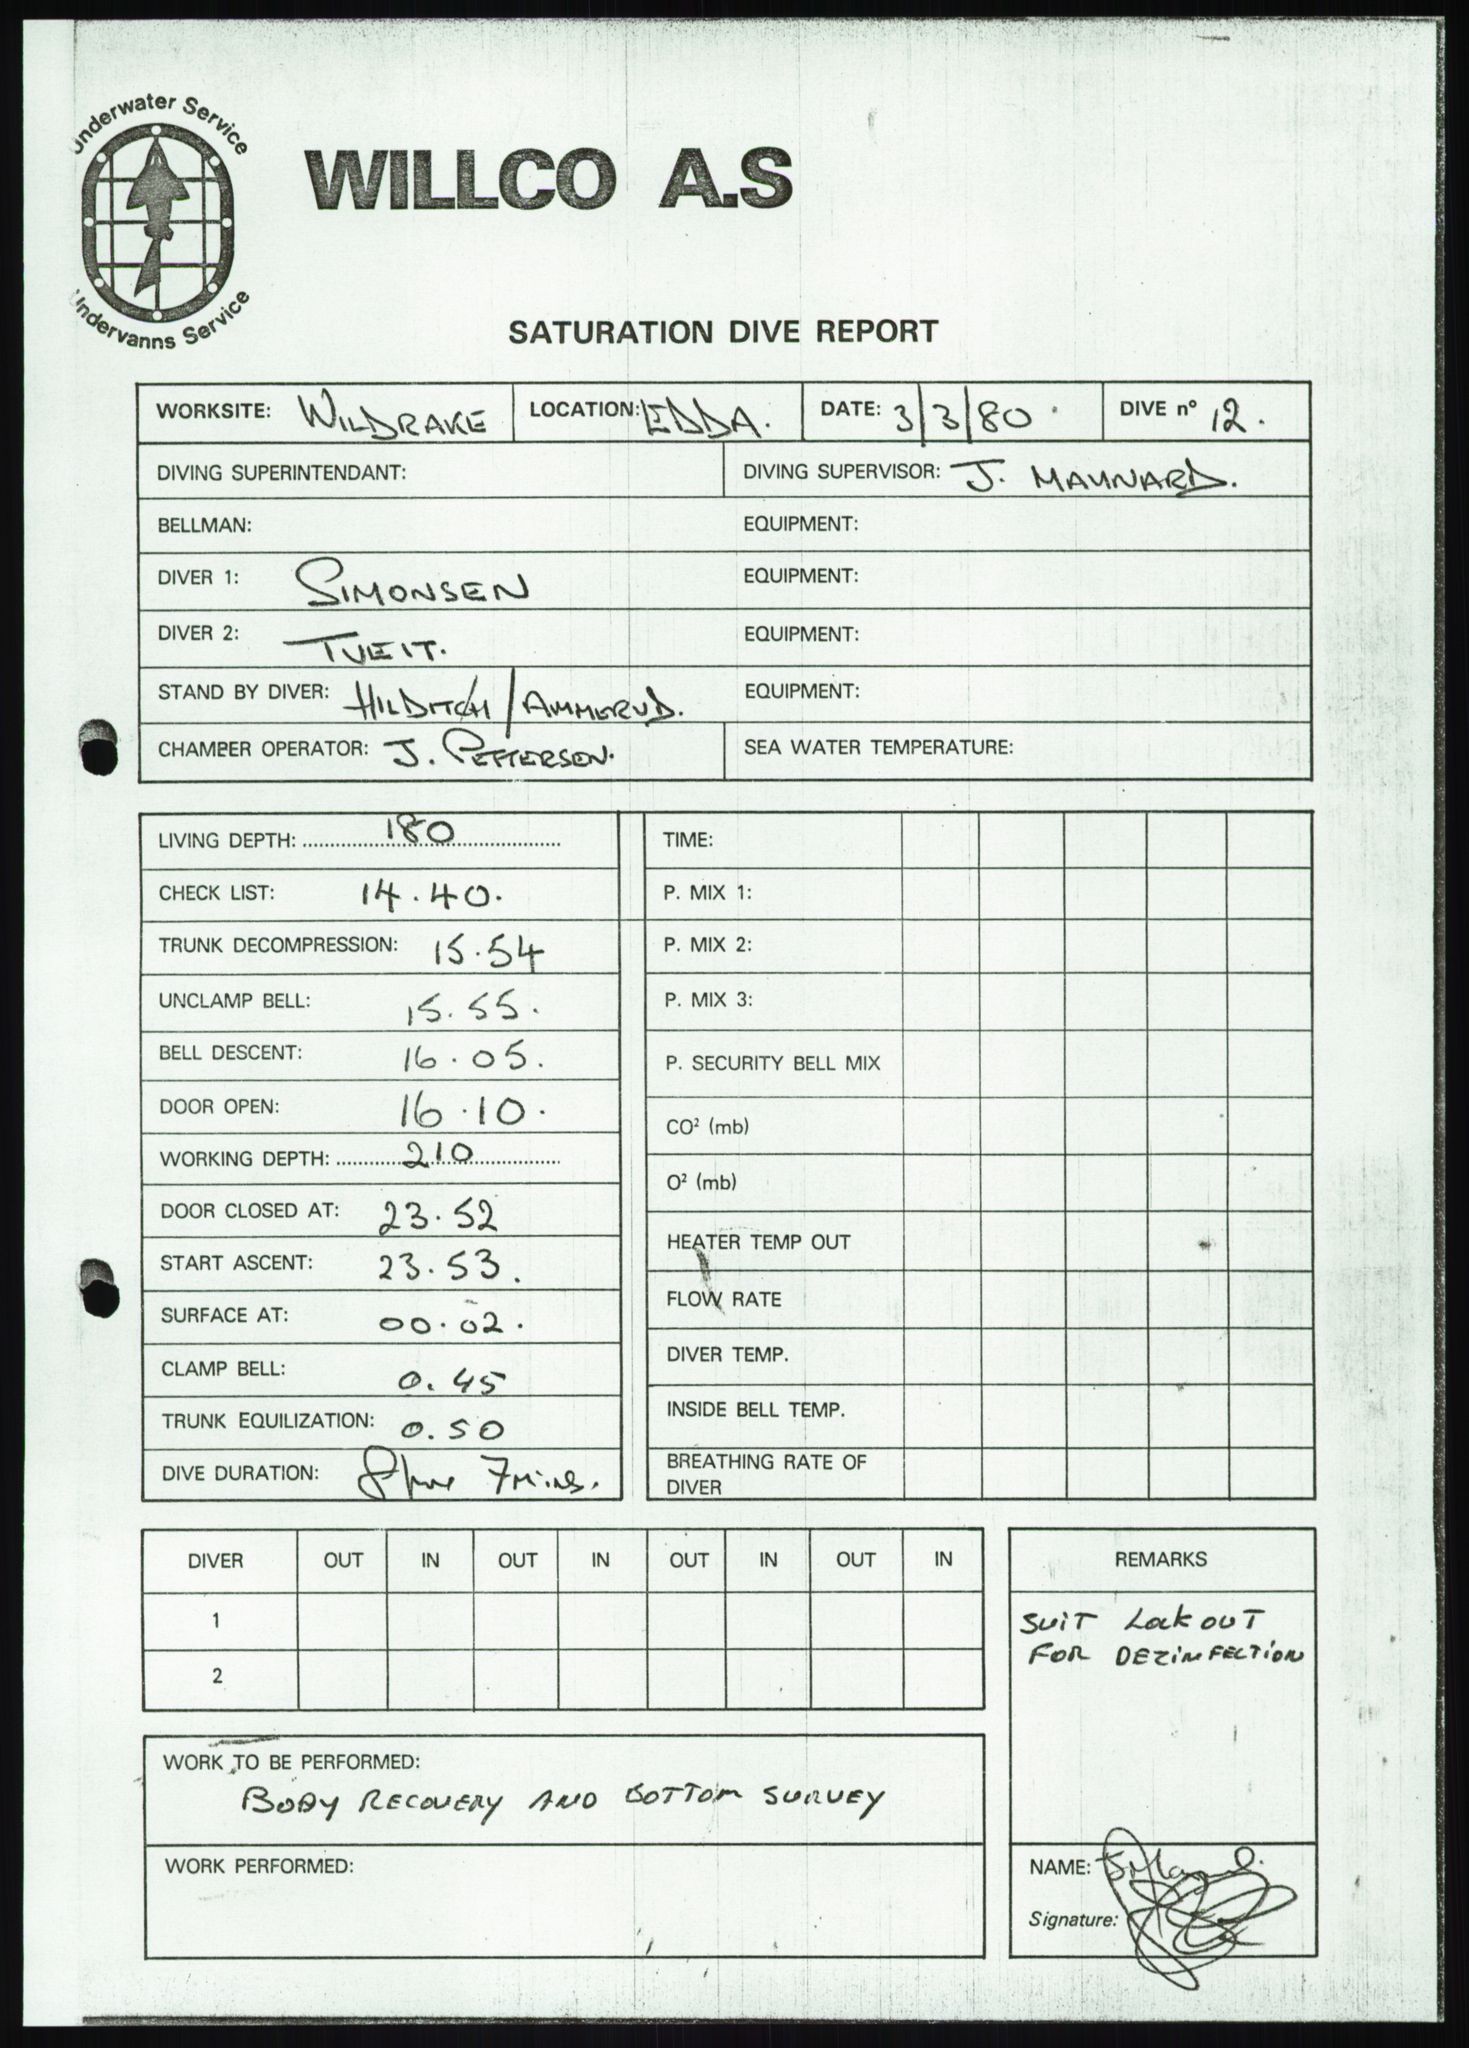 Underwater Service
Undervanns Service
WILLCO A.S
SATURATION DIVE REPORT
WORKSITE: WILDRAKE LOCATION: EDDA. DATE: 3/3/80. DIVE nº 12.
DIVING SUPERINTENDANT: DIVING SUPERVISOR: J. MAYNARD.
BELLMAN: EQUIPMENT:
DIVER 1: SIMONSEN EQUIPMENT:
DIVER 2: TVEIT. EQUIPMENT:
STAND BY DIVER: HILDITCH / AMMERUD. EQUIPMENT:
CHAMBER OPERATOR: J. PETTERSON. SEA WATER TEMPERATURE:
LIVING DEPTH: 180
CHECK LIST: 14.40.
TRUNK DECOMPRESSION: 15.54
UNCLAMP BELL: 15.55.
BELL DESCENT: 16.05.
DOOR OPEN: 16.10.
WORKING DEPTH: 210
DOOR CLOSED AT: 23.52
START ASCENT: 23.53.
SURFACE AT: 00.02.
CLAMP BELL: 0.45
TRUNK EQUILIZATION: 0.50
DIVE DURATION: 8 hrs 7 mins.
TIME:
P. MIX 1:
P. MIX 2:
P. MIX 3:
P. SECURITY BELL MIX
CO² (mb)
O² (mb)
HEATER TEMP OUT
FLOW RATE
DIVER TEMP.
INSIDE BELL TEMP.
BREATHING RATE OF
DIVER
DIVER OUT IN OUT IN OUT IN OUT IN
1
2
REMARKS
SUIT LOCK OUT
FOR DEZINFECTION
WORK TO BE PERFORMED:
BODY RECOVERY AND BOTTOM SURVEY
WORK PERFORMED:
NAME: J. Maynard.
Signature: